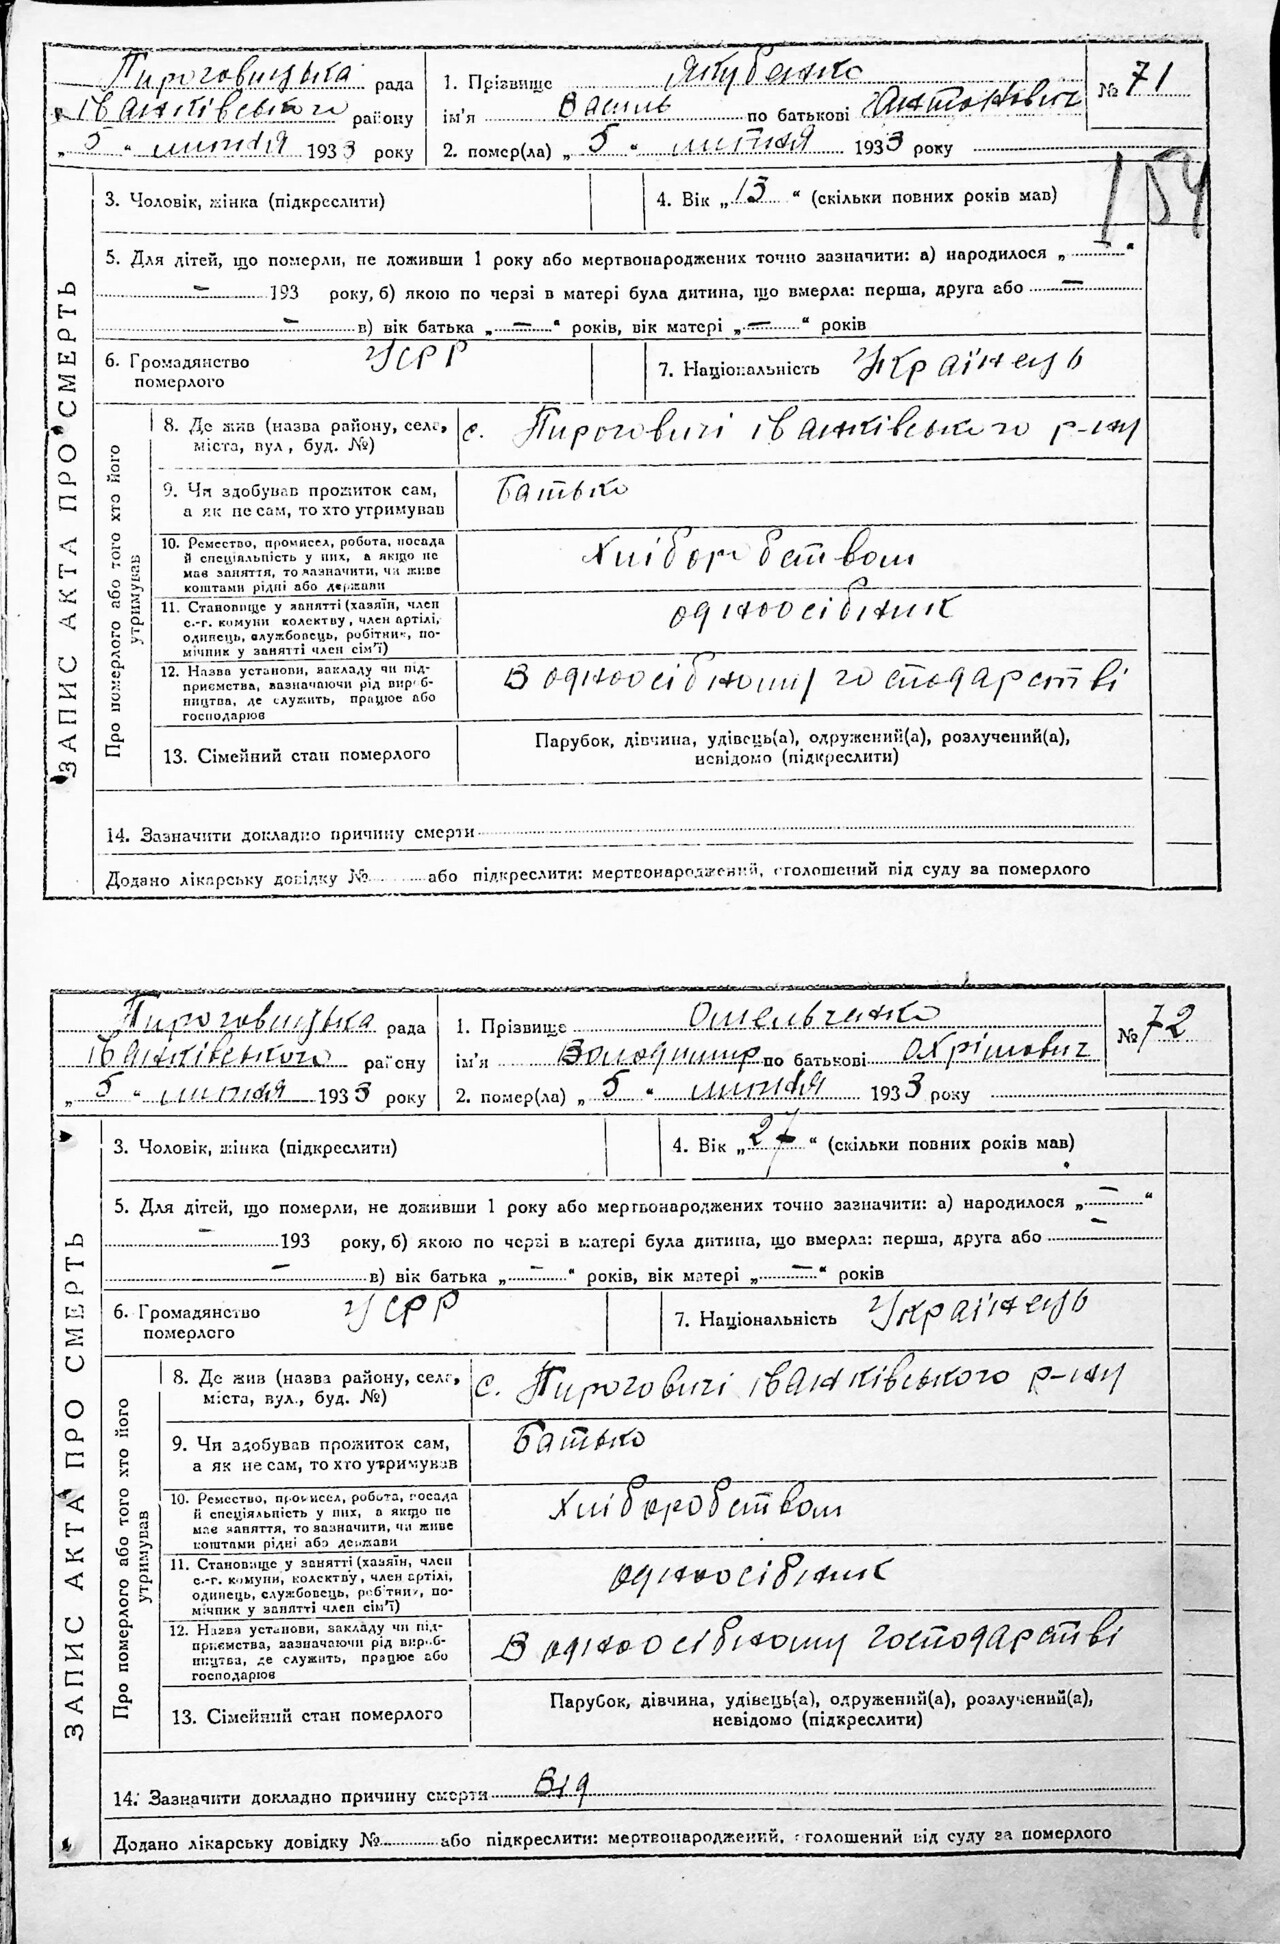 Пироговицька рада
Іванківського району
„ 5 “ липня 1933 року
1. Прізвище Якубенко
ім'я Василь по батькові Антонович
2. помер(ла) „ 5 “ липня 1933 року
№ 71
154
3. Чоловік, жінка (підкреслити)
4. Вік „ 13 “ (скільки повних років мав)
5. Для дітей, що померли, не доживши 1 року або мертвонароджених точно зазначити: а) народилося „ — “
— 193 року, б) якою по черзі в матері була дитина, що вмерла: перша, друга або —
— в) вік батька „ — “ років, вік матері „ — “ років
6. Громадянство
померлого
УСРР
7. Національність Українець
ЗАПИС АКТА ПРО СМЕРТЬ
Про померлого або того хто його
утримував
8. Де жив (назва району, села,
міста, вул., буд. №)
с. Пироговичі Іванківського р-ну
9. Чи здобував прожиток сам,
а як не сам, то хто утримував
Батько
10. Ремество, промисел, робота, посада
й спеціяльність у них, а якщо не
має заняття, то зазначити, чи живе
коштами рідні або держави
Хліборобством
11. Становище у занятті (хазяїн, член
с.-г. комуни колективу, член артілі,
одинець, службовець, робітник, по-
мічник у занятті член сім'ї)
одноосібник
12. Назва установи, закладу чи під-
приємства, зазначаючи рід вироб-
ництва, де служить, працює або
господарює
В одноосібному господарстві
13. Сімейний стан померлого
Парубок, дівчина, удівець(а), одружений(а), розлучений(а),
невідомо (підкреслити)
14. Зазначити докладно причину смерти
Додано лікарську довідку № або підкреслити: мертвонароджений, оголошений від суду за померлого
Пироговицька рада
Іванківського району
„ 5 “ липня 1933 року
1. Прізвище Омельченко
ім'я Володимир по батькові Охрімович
2. помер(ла) „ 5 “ липня 1933 року
№ 72
3. Чоловік, жінка (підкреслити)
4. Вік „ 27 “ (скільки повних років мав)
5. Для дітей, що померли, не доживши 1 року або мертвонароджених точно зазначити: а) народилося „ — “
— 193 року, б) якою по черзі в матері була дитина, що вмерла: перша, друга або —
— в) вік батька „ — “ років, вік матері „ — “ років
6. Громадянство
померлого
УСРР
7. Національність Українець
ЗАПИС АКТА ПРО СМЕРТЬ
Про померлого або того хто його
утримував
8. Де жив (назва району, села,
міста, вул., буд. №)
с. Пироговичі Іванківського р-ну
9. Чи здобував прожиток сам,
а як не сам, то хто утримував
Батько
10. Ремество, промисел, робота, посада
й спеціяльність у них, а якщо не
має заняття, то зазначити, чи живе
коштами рідні або держави
Хліборобством
11. Становище у занятті (хазяїн, член
с.-г. комуни, колективу, член артілі,
одинець, службовець, робітник, по-
мічник у занятті член сім'ї)
одноосібник
12. Назва установи, закладу чи під-
приємства, зазначаючи рід вироб-
ництва, де служить, працює або
господарює
В одноосібному господарстві
13. Сімейний стан померлого
Парубок, дівчина, удівець(а), одружений(а), розлучений(а),
невідомо (підкреслити)
14. Зазначити докладно причину смерти Від
Додано лікарську довідку № або підкреслити: мертвонароджений, оголошений від суду за померлого